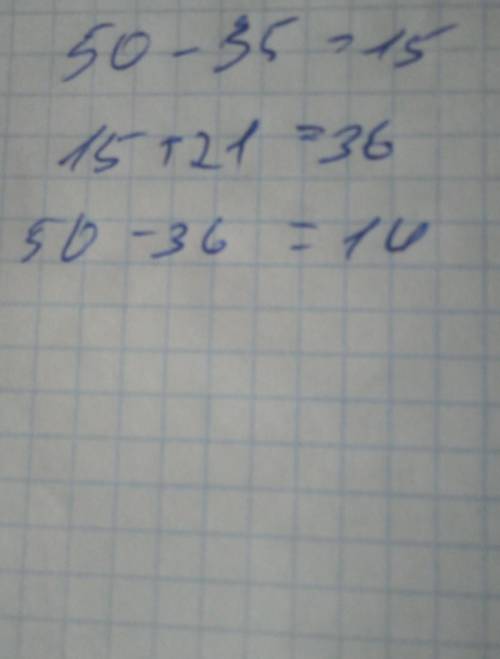 50 - 35 = 15
15 + 21 = 36
50 - 36 = 14